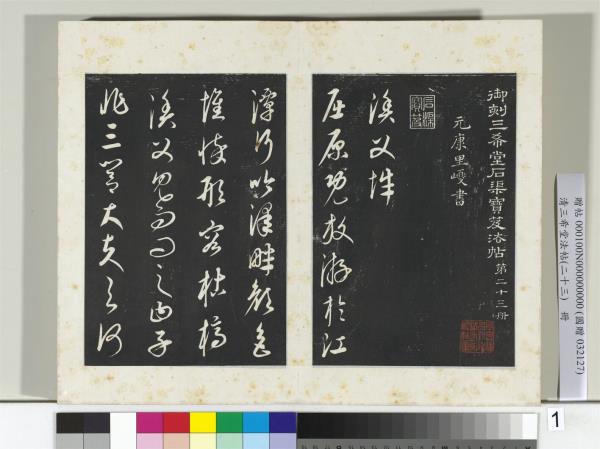 御刻三希堂石渠寶笈法帖 第二十三冊
元康里巙書
石渠寶笈
漁父辭
屈原既放游於江
潭行吟澤畔顏色
憔悴形容枯槁
漁父見而問之曰子
非三閭大夫與何
贈帖 000100N000000000 (國贈 032127)
清三希堂法帖(二十三) 冊
1